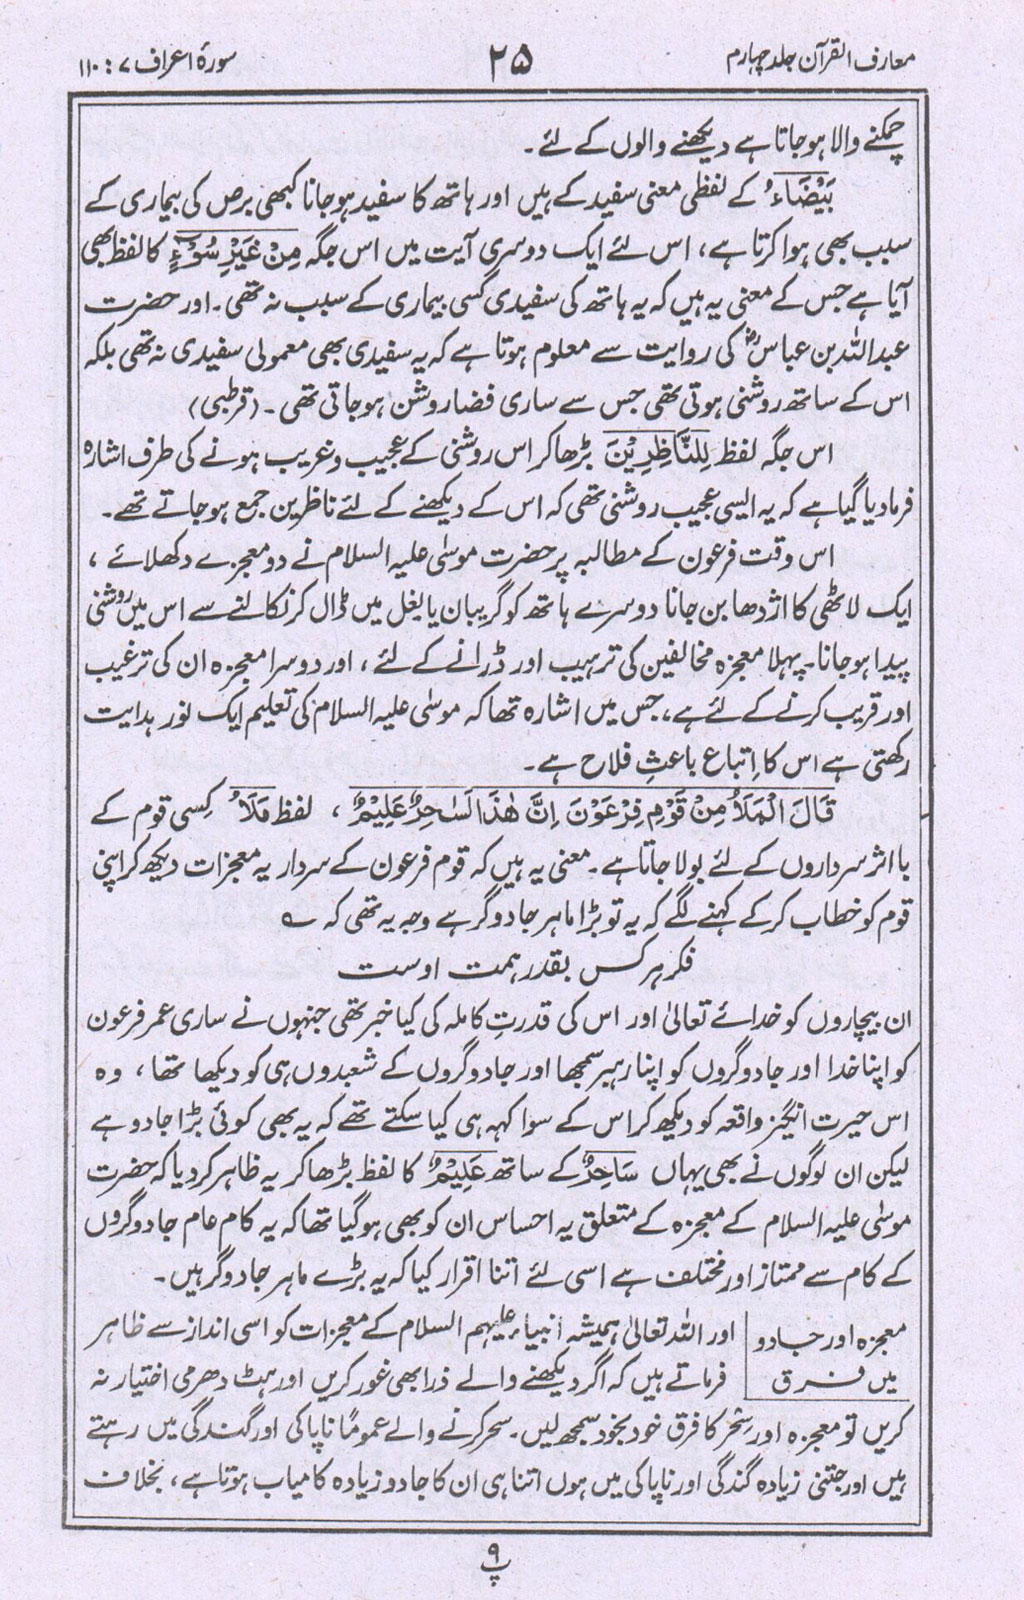 معارف القرآن جلد چہارم
۲۵
سورۂ اعراف ۷ : ۱۱۰
چمکنے والا ہو جاتا ہے دیکھنے والوں کے لئے ۔
بَیْضَآءُ کے لفظی معنی سفید کے ہیں اور ہاتھ کا سفید ہو جانا کبھی برص کی بیماری کے
سبب بھی ہوا کرتا ہے ، اس لئے ایک دوسری آیت میں اس جگہ مِنْ غَیْرِ سُوْٓءٍ کا لفظ بھی
آیا ہے جس کے معنی یہ ہیں کہ یہ ہاتھ کی سفیدی کسی بیماری کے سبب نہ تھی ۔ اور حضرت
عبداللہ بن عباسؓ کی روایت سے معلوم ہوتا ہے کہ یہ سفیدی بھی معمولی سفیدی نہ تھی بلکہ
اس کے ساتھ روشنی ہوتی تھی جس سے ساری فضا روشن ہو جاتی تھی ۔ (قرطبی)
اس جگہ لفظ لِلنّٰاظِرِیْنَ بڑھا کر اس روشنی کے عجیب و غریب ہونے کی طرف اشارہ
فرما دیا گیا ہے کہ یہ ایسی عجیب روشنی تھی کہ اس کے دیکھنے کے لئے ناظرین جمع ہو جاتے تھے ۔
اس وقت فرعون کے مطالبہ پر حضرت موسیٰ علیہ السلام نے دو معجزے دکھلائے ،
ایک لاٹھی کا اژدھا بن جانا دوسرے ہاتھ کو گریبان یا بغل میں ڈال کر نکالنے سے اس میں روشنی
پیدا ہو جانا ۔ پہلا معجزہ مخالفین کی ترہیب اور ڈرانے کے لئے ، اور دوسرا معجزہ ان کی ترغیب
اور قریب کرنے کے لئے ہے ، جس میں اشارہ تھا کہ موسیٰ علیہ السلام کی تعلیم ایک نور ہدایت
رکھتی ہے اس کا اِتباع باعثِ فلاح ہے ۔
قَالَ الْمَلَأُ مِنْ قَوْمِ فِرْعَوْنَ اِنَّ ھٰذَا لَسٰحِرٌ عَلِیْمٌ ، لفظ مَلَاُ کِسی قوم کے
بااثر سرداروں کے لئے بولا جاتا ہے ۔ معنی یہ ہیں کہ قوم فرعون کے سردار یہ معجزات دیکھ کر اپنی
قوم کو خطاب کر کے کہنے لگے کہ یہ تو بڑا ماہر جادوگر ہے وجہ یہ تھی کہ ؎
فکر ہر کس بقدر ہمت اوست
ان بیچاروں کو خدائے تعالیٰ اور اس کی قدرتِ کاملہ کی کیا خبر تھی جنہوں نے ساری عمر فرعون
کو اپنا خدا اور جادوگروں کو اپنا رہبر سمجھا اور جادوگروں کے شعبدوں ہی کو دیکھا تھا ، وہ
اس حیرت انگیز واقعہ کو دیکھ کر اس کے سوا کہہ ہی کیا سکتے تھے کہ یہ بھی کوئی بڑا جادو ہے
لیکن ان لوگوں نے بھی یہاں سَاحِرٌ کے ساتھ عَلِیْمٌ کا لفظ بڑھا کر یہ ظاہر کر دیا کہ حضرت
موسٰی علیہ السلام کے معجزہ کے متعلق یہ احساس ان کو بھی ہو گیا تھا کہ یہ کام عام جادوگروں
کے کام سے ممتاز اور مختلف ہے اسی لئے اتنا اقرار کیا کہ یہ بڑے ماہر جادوگر ہیں ۔
معجزہ اور جادو
میں فرق
اور اللہ تعالیٰ ہمیشہ انبیاء علیہم السلام کے معجزات کو اسی انداز سے ظاہر
فرماتے ہیں کہ اگر دیکھنے والے ذرا بھی غور کریں اور ہٹ دھرمی اختیار نہ
کریں تو معجزہ اور سِحْر کا فرق خود بخود سمجھ لیں ۔ سحر کرنے والے عمومًا ناپاکی اور گندگی میں رہتے
ہیں اور جتنی زیادہ گندگی اور ناپاکی میں ہوں اتنا ہی ان کا جادو زیادہ کامیاب ہوتا ہے ، بخلاف
۹
پ